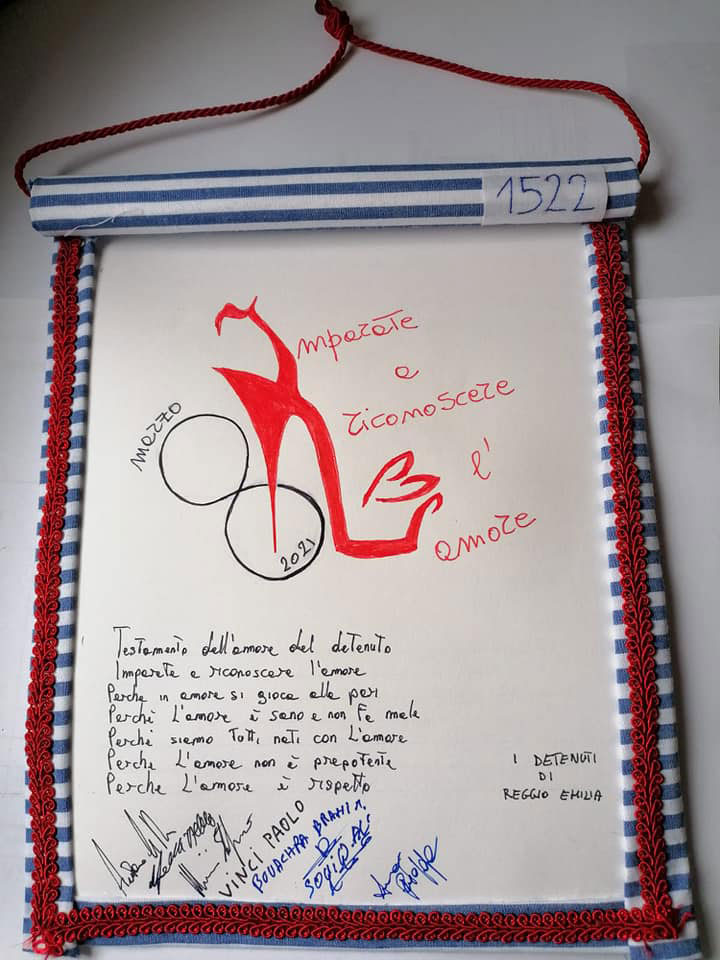 1522
Imparate
a
riconoscere
l'
amore
marzo
2021
Testamento dell'amore del detenuto
Imparate a riconoscere l'amore
Perche in amore si gioca alla pari
Perché L'amore è sano e non fa male
Perché siamo tutti nati con L'amore
Perche L'amore non è prepotente
Perche L'amore è rispetto
I DETENUTI
DI
REGGIO EMILIA
VINCI PAOLO
BOUACHRA BRAHIM